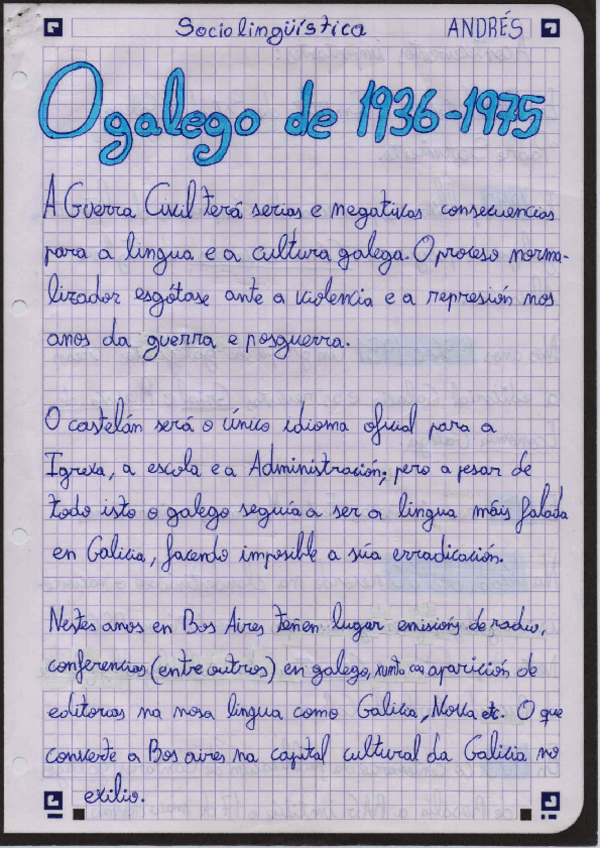 Sociolingüística
ANDRÉS
O galego de 1936-1975
A Guerra Civil terá serias e negativas consecuencias
para a lingua e a cultura galega. O proceso norma-
lizador esgótase ante a violencia e a represión nos
anos da guerra e posguerra.
O castelán será o único idioma oficial para a
Igrexa, a escola e a Administración; pero a pesar de
todo isto o galego seguía a ser a lingua máis falada
en Galicia, facendo imposible a súa erradicación.
Nestes anos en Bos Aires teñen lugar emisións de radio,
conferencias (entre outros) en galego, xunto coa aparición de
editorias na nosa lingua como Galicia, Nova etc. O que
converte a Bos aires na capital cultural da Galicia no
exilio.